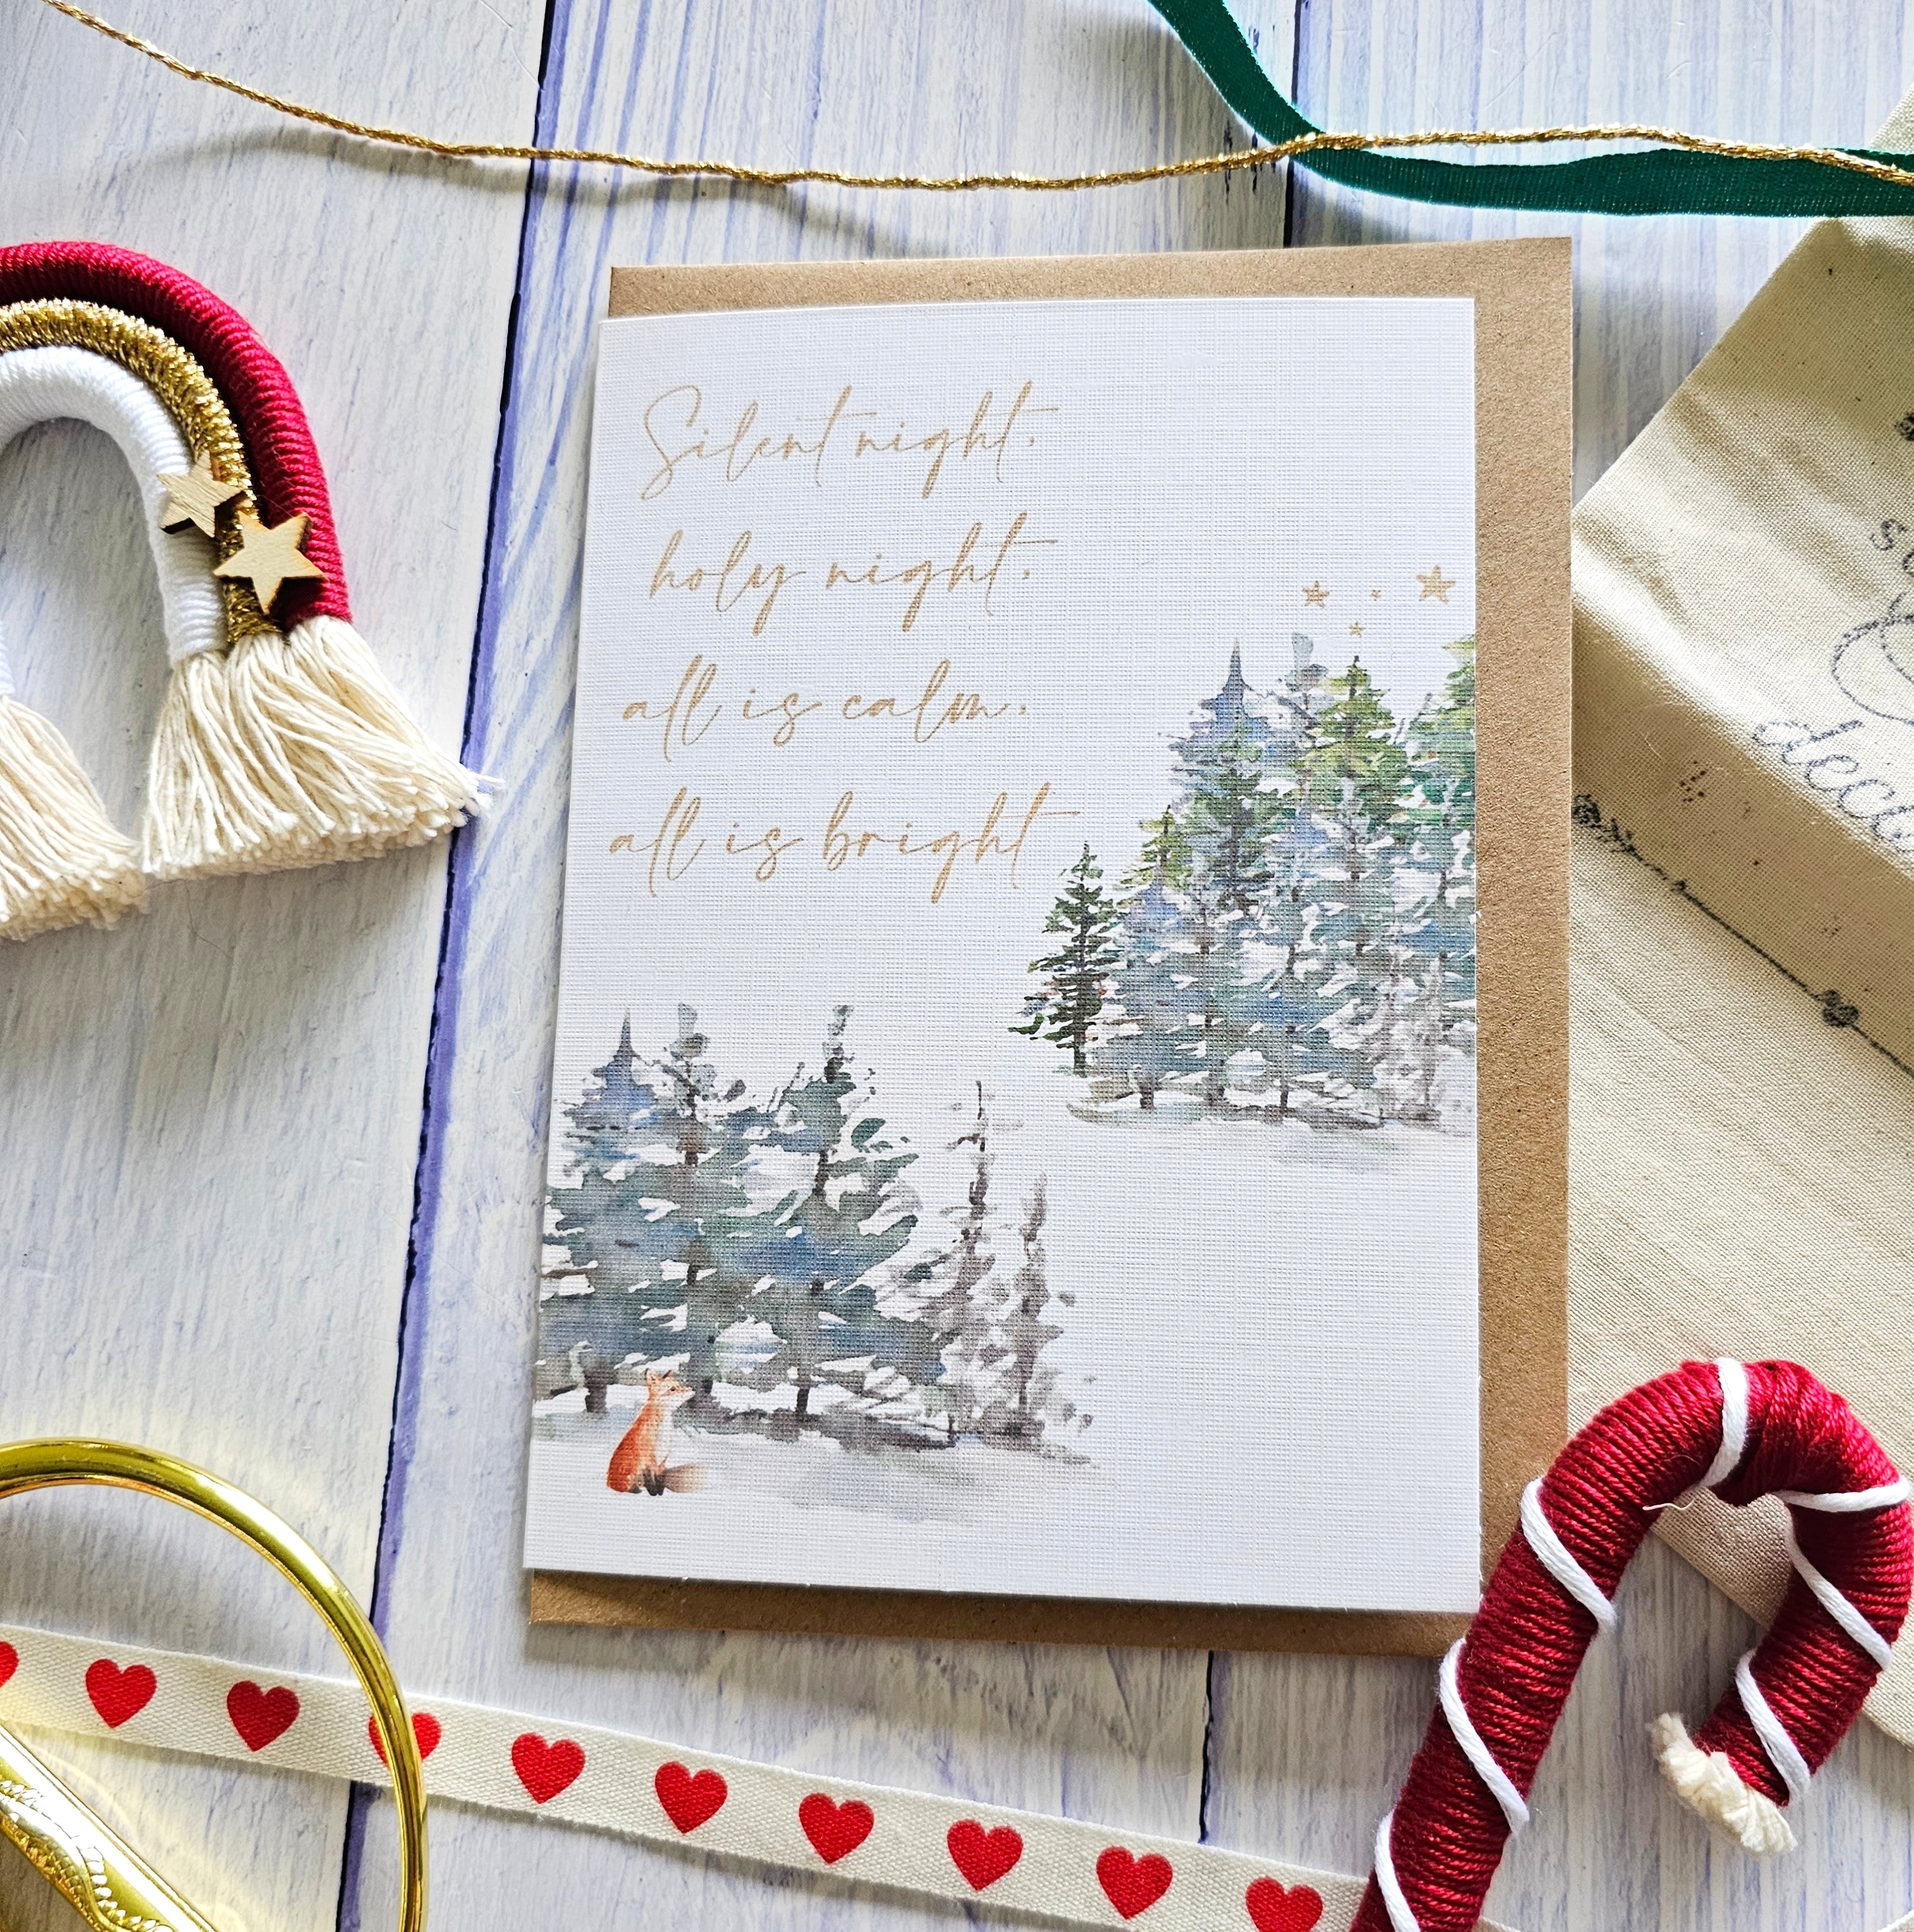 Silent night.
holy night.
all is calm.
all is bright